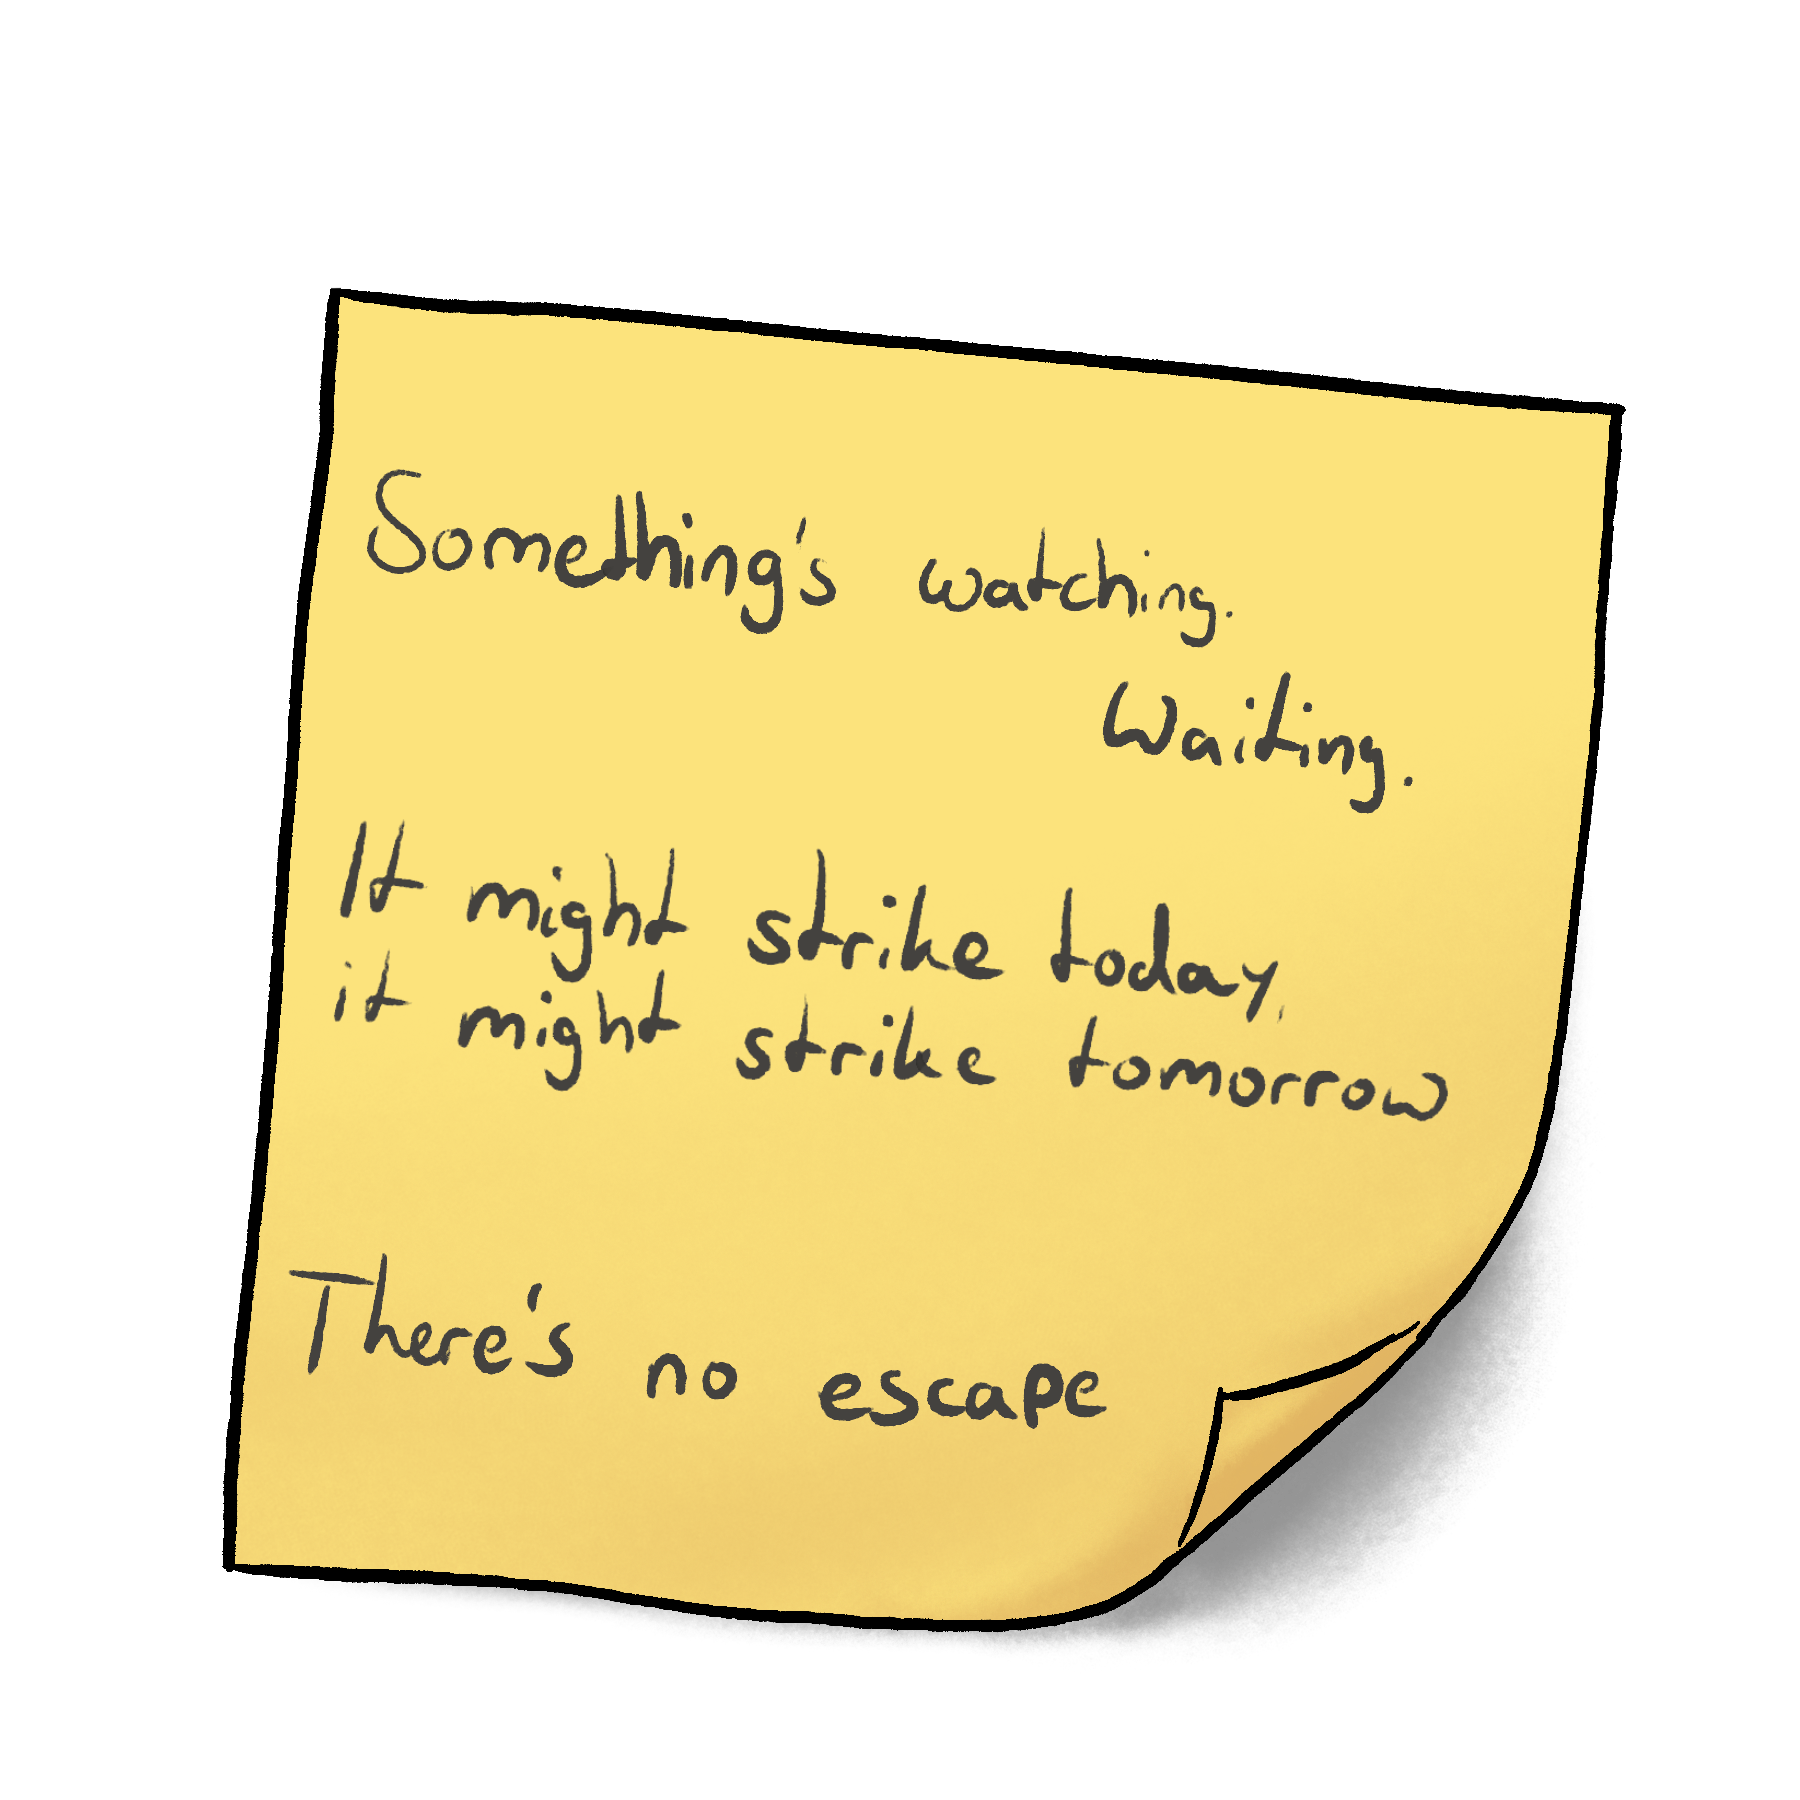 Something's watching.
Waiting.
It might strike today,
it might strike tomorrow
There's no escape